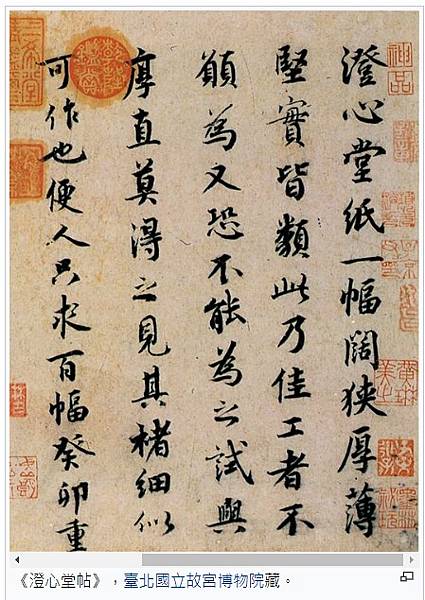 澄心堂紙一幅闊狹厚薄
堅實皆類此乃佳工者不
願為又恐不能為之試與
厚直莫得之見其楮細似
可作也便人只求百幅癸卯重
《澄心堂帖》，臺北國立故宮博物院藏。